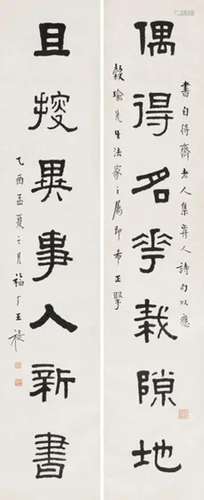 書自得齋老人集人詩句以應
偶得名華栽隙地
穀瑜先生法家之屬即希正擘
且搜異事入新書
乙酉孟夏之月福厂王禔